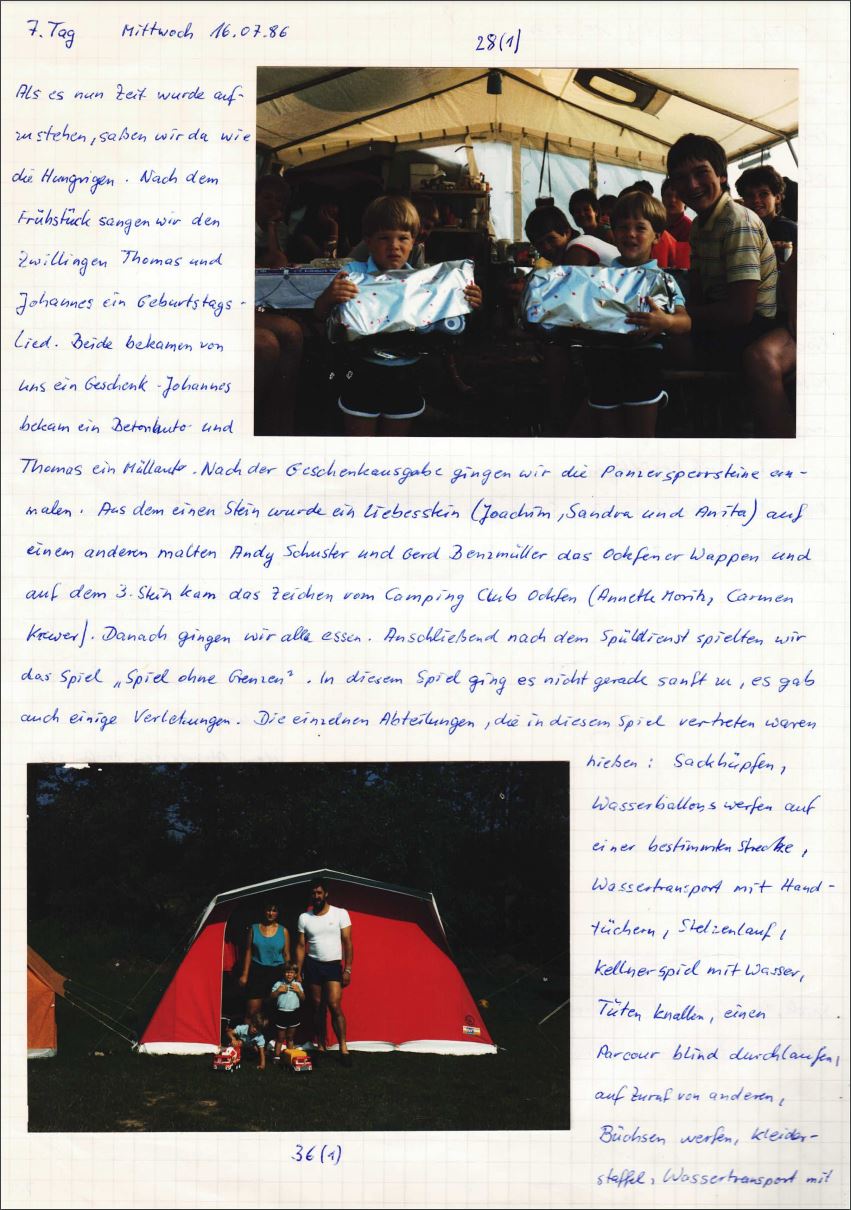 7. Tag Mittwoch 16.07.86
28(1)
Als es nun Zeit wurde auf-
zustehen, saßen wir da wie
die Hungrigen. Nach dem
Frühstück sangen wir den
Zwillingen Thomas und
Johannes ein Geburtstags-
Lied. Beide bekamen von
uns ein Geschenk - Johannes
bekam ein Betonauto und
Thomas ein Müllauto. Nach der Geschenkausgabe gingen wir die Panzersperrsteine an-
malen. Aus dem einen Stein wurde ein Liebesstein (Joachim, Sandra und Anita) auf
einem anderen malten Andy Schuster und Gerd Benzmüller das Ockfener Wappen und
auf dem 3. Stein kam das Zeichen vom Camping Club Ockfen (Annette Moritz, Carmen
Krewer). Danach gingen wir alle essen. Anschließend nach dem Spüldienst spielten wir
das Spiel „Spiel ohne Grenzen“. In diesem Spiel ging es nicht gerade sanft zu, es gab
auch einige Verletzungen. Die einzelnen Abteilungen, die in diesem Spiel vertreten waren
hießen: Sackhüpfen,
Wasserballons werfen auf
einer bestimmten Strecke,
Wassertransport mit Hand-
tüchern, Stelzenlauf,
Kellnerspiel mit Wasser,
Tüten knallen, einen
Parcour blind durchlaufen,
auf Zuruf von anderen,
Büchsen werfen, Kleider-
staffel, Wassertransport mit
36(1)